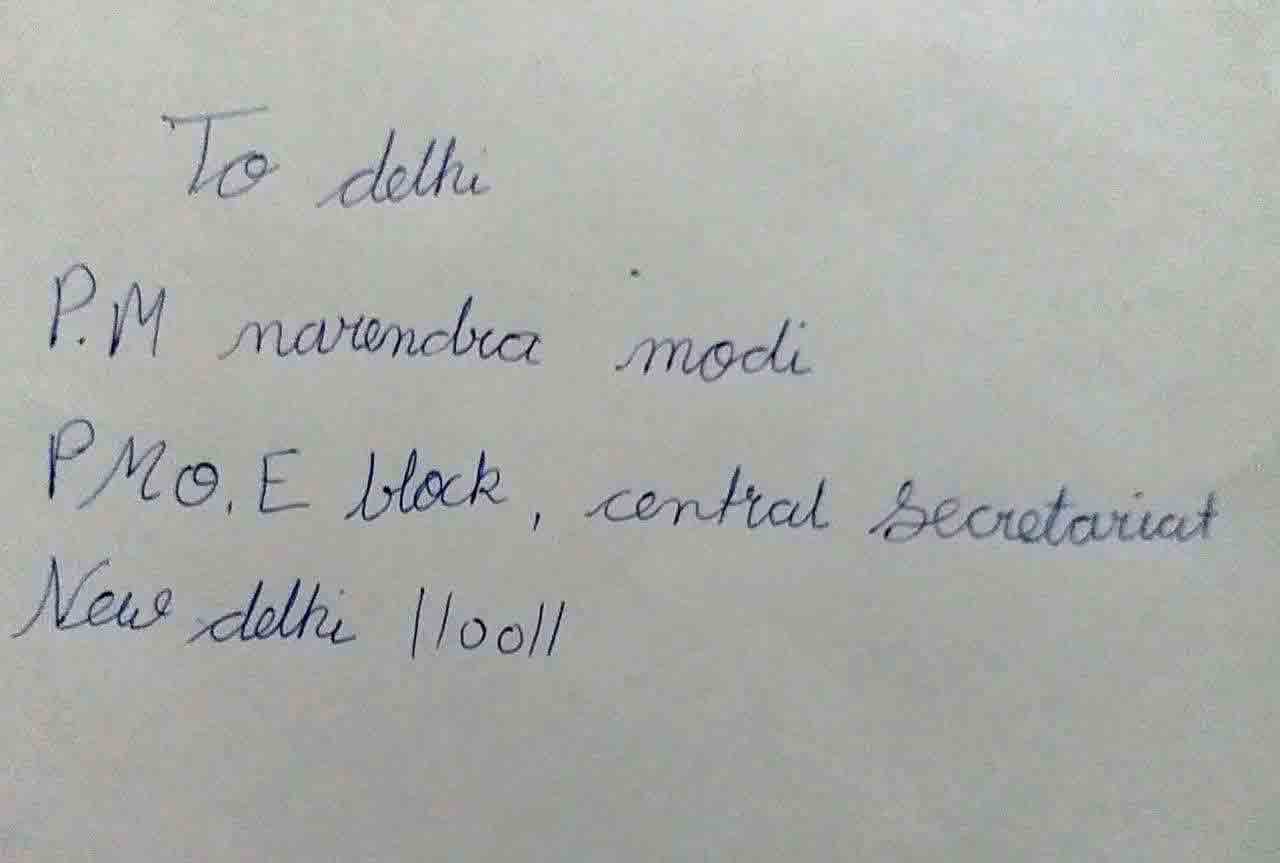 To delhi
P.M narendra modi
PMO, E block, central secretariat
New delhi 110011